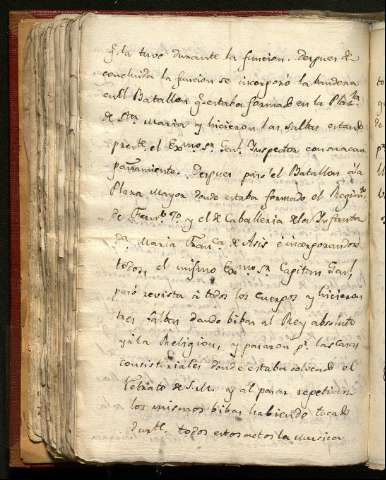 q.e la tubo durante la funcion. Despues de
concluida la funcion se incorporó la bandera
en el Batallon q.e estaba formado en la Plaz.ta
de S.ta Maria y hicieron las saltas estando
pres.te el Ex.mo S.or Gen.l Inspector con su acom
pañamiento. Despues pasó el Batallon á la
Plaza Mayor donde estaba formado el Regim.to
de Fern.do 7.o y el de Caballeria de la Infanta
D.a Maria Fran.ca de Asis é incorporandose
todos, el mismo Ex.mo S.or Capitan Gen.l
pasó revista á todos los cuerpos y hicieron
tres saltas dando bibas al Rey absoluto
y á la Religion, y pasaron p.r las casas
consistoriales donde estaba el
Retrato de S. M. y al pasar repetieron
los mismos bibas habiendo tocado
dur.te todos estos actos la musica